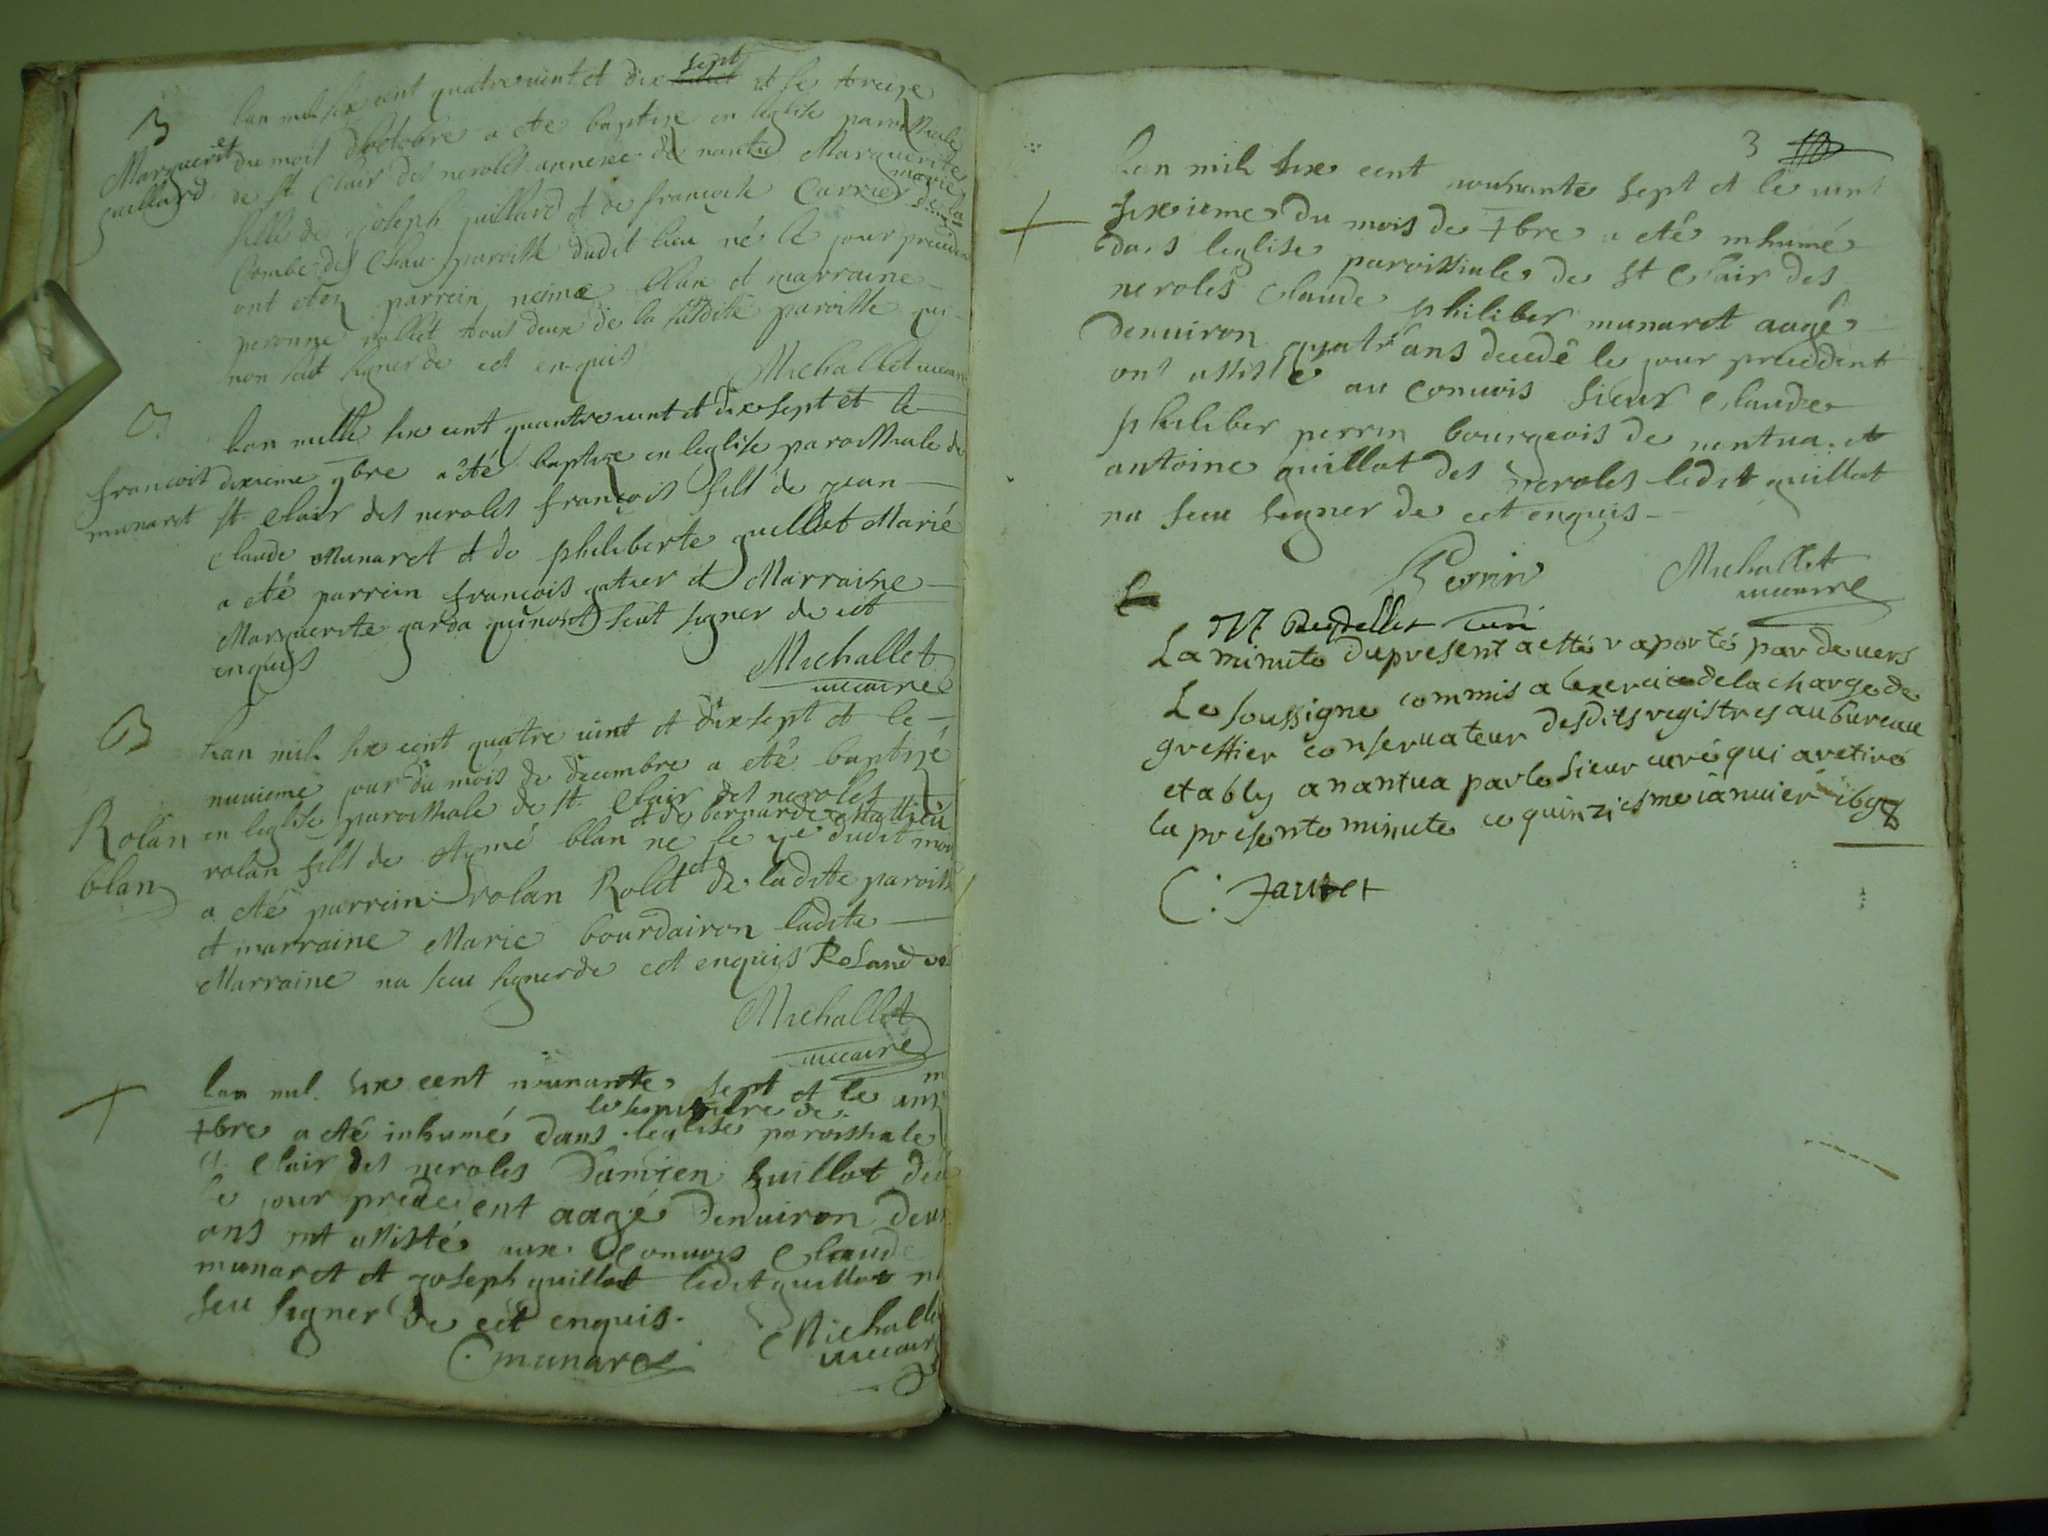 B
Marguerite
guillard
lan mil six cent quatre uint et dix sept et le treize
du mois doctobre a ete baptise en leglise paroissiale
de st Clair des neroles annexe de nantua Marguerite
fille de joseph guillard et de françoise Carrier
Combe des Chau paroisse dudit lieu né le jour
ont eté parrein et marraine
peronne rollet tous deux de la susdite paroisse qui
non seut signer de cet enquis
Michallet uicaire
B
françois
munaret
lan mille six cent quatre uint et dix sept et le
dixieme 9bre a eté baptise en leglise paroissiale de
st Clair des neroles françois fils de jean
claude Munaret et de philiberte guillot Marié
a eté parrein françois gatier et Marraine
Marguerite garda qui nont seut signer de cet
enquis
Michallet
uicaire
B
Rolan
blan
lan mil six cent quatre uint et dix sept et le
nuuieme jour du mois de decembre a eté baptisé
en leglise paroissiale de st Clair des neroles
et de bernarde mathieu
rolan fils de Aymé blan né le 7e dudit moi
a eté parrein rolan Rolet de ladite paroisse
et marraine Marie bourdairon ladite
Marraine na seu signer de cet enquis Roland
Michallet
uicaire
lan mil six cent nounante sept et le
xbre a eté inhumé dans leglise paroissiale
st Clair des neroles Damien guillot
le jour precedent aagé denuiron deux
ans ont assisté aux conuois Claude
munaret et joseph guillot ledit guillot
seu signer de cet enquis.
C munaret
Michallet
uicaire
3
Lan mil six cent nounante sept et le uint
sixieme du mois de xbre a eté inhumé
dans leglise paroissiale de st Clair des
neroles Claude philiber munaret aagé
denuiron quatre ans decedé le jour precedent
ont assisté au conuois sieur Claude
philiber perrin bourgeois de nentua et
antoine guillot des neroles ledit guillot
na seu signer de cet enquis
Perrin
Michallet
uicaire
La minute du present a esté raporté par deuers
Le soussigne commis a lexercice de la charge de
greffier conseruateur desdits registres au bureau
estably a nantua par le sieur curé qui a retiré
la presente minute ce quinziesme ianuier 1698
C. Jantet